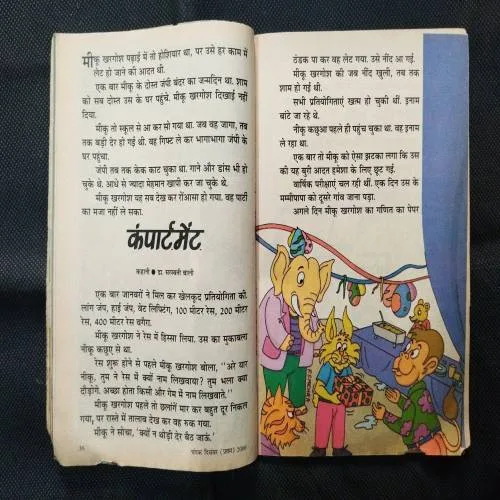 मीकू खरगोश पढ़ाई में तो होशियार था, पर उसे हर काम में
लेट हो जाने की आदत थी.
एक बार मीकू के दोस्त जंपी बंदर का जन्मदिन था. शाम
को सब दोस्त उस के घर पहुंचे. मीकू खरगोश दिखाई नहीं
दिया.
मीकू तो स्कूल से आ कर सो गया था. जब वह जागा, तब
तक बड़ी देर हो गई थी. वह गिफ्ट ले कर भागाभागा जंपी के
घर पहुंचा.
जंपी तब तक केक काट चुका था. गाने और डांस भी हो
चुके थे. आधे से ज्यादा मेहमान खापी कर जा चुके थे.
मीकू खरगोश यह सब देख कर रोंआसा हो गया. वह पार्टी
का मजा नहीं ले सका.
कंपार्टमेंट
कहानी ● डा. सरस्वती बाली
एक बार जानवरों ने मिल कर खेलकूद प्रतियोगिता की.
लांग जंप, हाई जंप, वेट लिफ्टिंग, 100 मीटर रेस, 200 मीटर
रेस, 400 मीटर रेस वगैरा.
मीकू खरगोश ने रेस में हिस्सा लिया. उस का मुकाबला
नीकू कछुए से था.
रेस शुरू होने से पहले मीकू खरगोश बोला, "अरे यार
नीकू, तुम ने रेस में क्यों नाम लिखवाया? तुम भला क्या
दौड़ोगे. अच्छा होता किसी और गेम में नाम लिखवाते."
मीकू खरगोश पहले तो छलांगें मार कर बहुत दूर निकल
गया, पर रास्ते में तालाब देख कर वह रुक गया.
मीकू ने सोचा, 'क्यों न थोड़ी देर बैठ जाऊं.'
चंपक दिसंबर (प्रथम)
ठंडक पा कर वह लेट गया. उसे नींद आ गई.
मीकू खरगोश की जब नींद खुली, तब तक
शाम हो गई थी.
सभी प्रतियोगिताएं खत्म हो चुकी थीं. इनाम
बांटे जा रहे थे.
नीकू कछुआ पहले ही पहुंच चुका था. वह इनाम
ले रहा था.
एक बार तो मीकू को ऐसा झटका लगा कि उस
की यह बुरी आदत हमेशा के लिए छूट गई.
वार्षिक परीक्षाएं चल रही थीं. एक दिन उस के
मम्मीपापा को दूसरे गांव जाना पड़ा.
अगले दिन मीकू खरगोश का गणित का पेपर